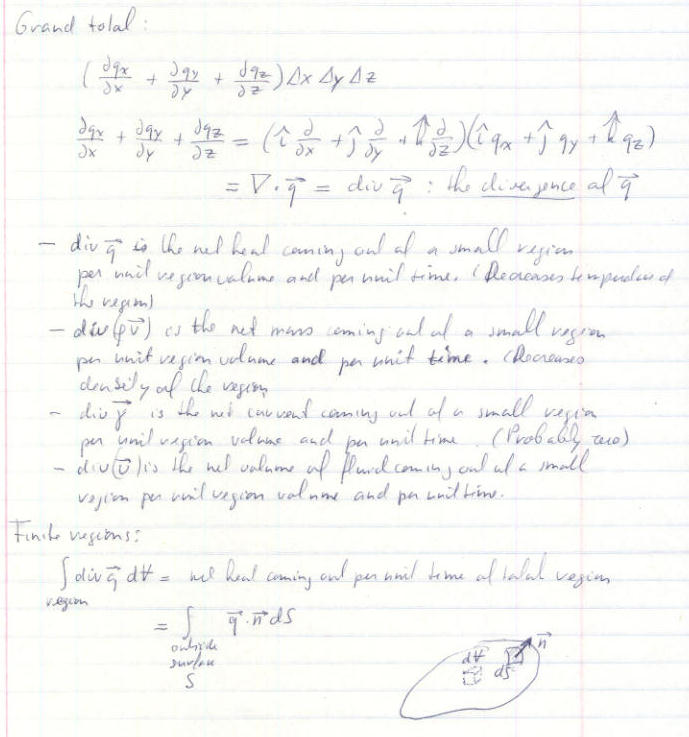 Grand total :
( ∂qx/∂x + ∂qy/∂y + ∂qz/∂z ) Δx Δy Δz
∂qx/∂x + ∂qy/∂y + ∂qz/∂z = ( î ∂/∂x + ĵ ∂/∂y + k̂ ∂/∂z )( î qx + ĵ qy + k̂ qz )
= ∇ · q⃗ = div q⃗ : the divergence of q⃗
– div q⃗ is the net heat coming out of a small region
per unit region volume and per unit time. (Decreases temperature of
the region)
– div(ρv⃗) is the net mass coming out of a small region
per unit region volume and per unit time. (Decreases
density of the region
– div j⃗ is the net current coming out of a small region
per unit region volume and per unit time. (Probably zero)
– div(v⃗) is the net volume of fluid coming out of a small
region per unit region volume and per unit time.
Finite regions:
∫ div q⃗ dV = net heat coming out per unit time of total region
region
= ∫ q⃗ · n⃗ dS
outside
surface
S
n⃗
dV
dS